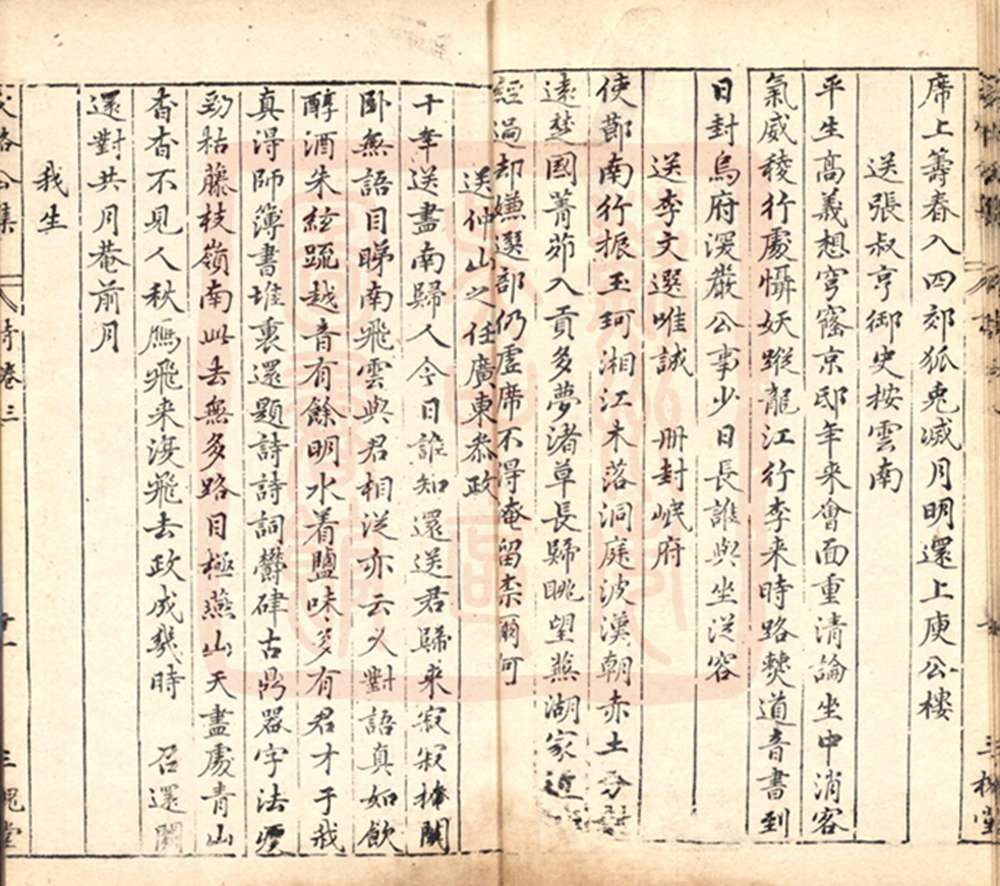 席上籌春入四郊狐兎减月明還上庾公樓
送張叔亨御史按雲南
平生高義想穹窿京邸年來會面重清論坐中消客
氣威稜行處懾妖蹤龍江行李来時路僰道音書到
日封烏府深嚴公事少日長誰與坐从容
送李文選唯誠册封岷府
使節南行振玉珂湘江木落洞庭波漢朝赤土分
遠楚國菁茆入貢多夢渚草長歸眺望燕湖家近
經過却嫌選部仍虛席不得奄留柰爾何
送仲山之任廣東叅政
十年送盡南歸人今日誰知還送君歸來寂寂掩關
卧無語目睇南飛雲與君相從亦云乆對語真如飲
醇酒朱絃䟽越音有餘明水着鹽味多有君才于我
真得師簿書堆裏還題詩詩詞欝硉古鼎器字法
勁枯藤枝嶺南此去無多路目極燕山天盡處青山
杳杳不見人秋鴈飛来復飛去政成幾時 召還闕
還對共月菴前月
我生
公集
詩卷三
十一
三槐堂